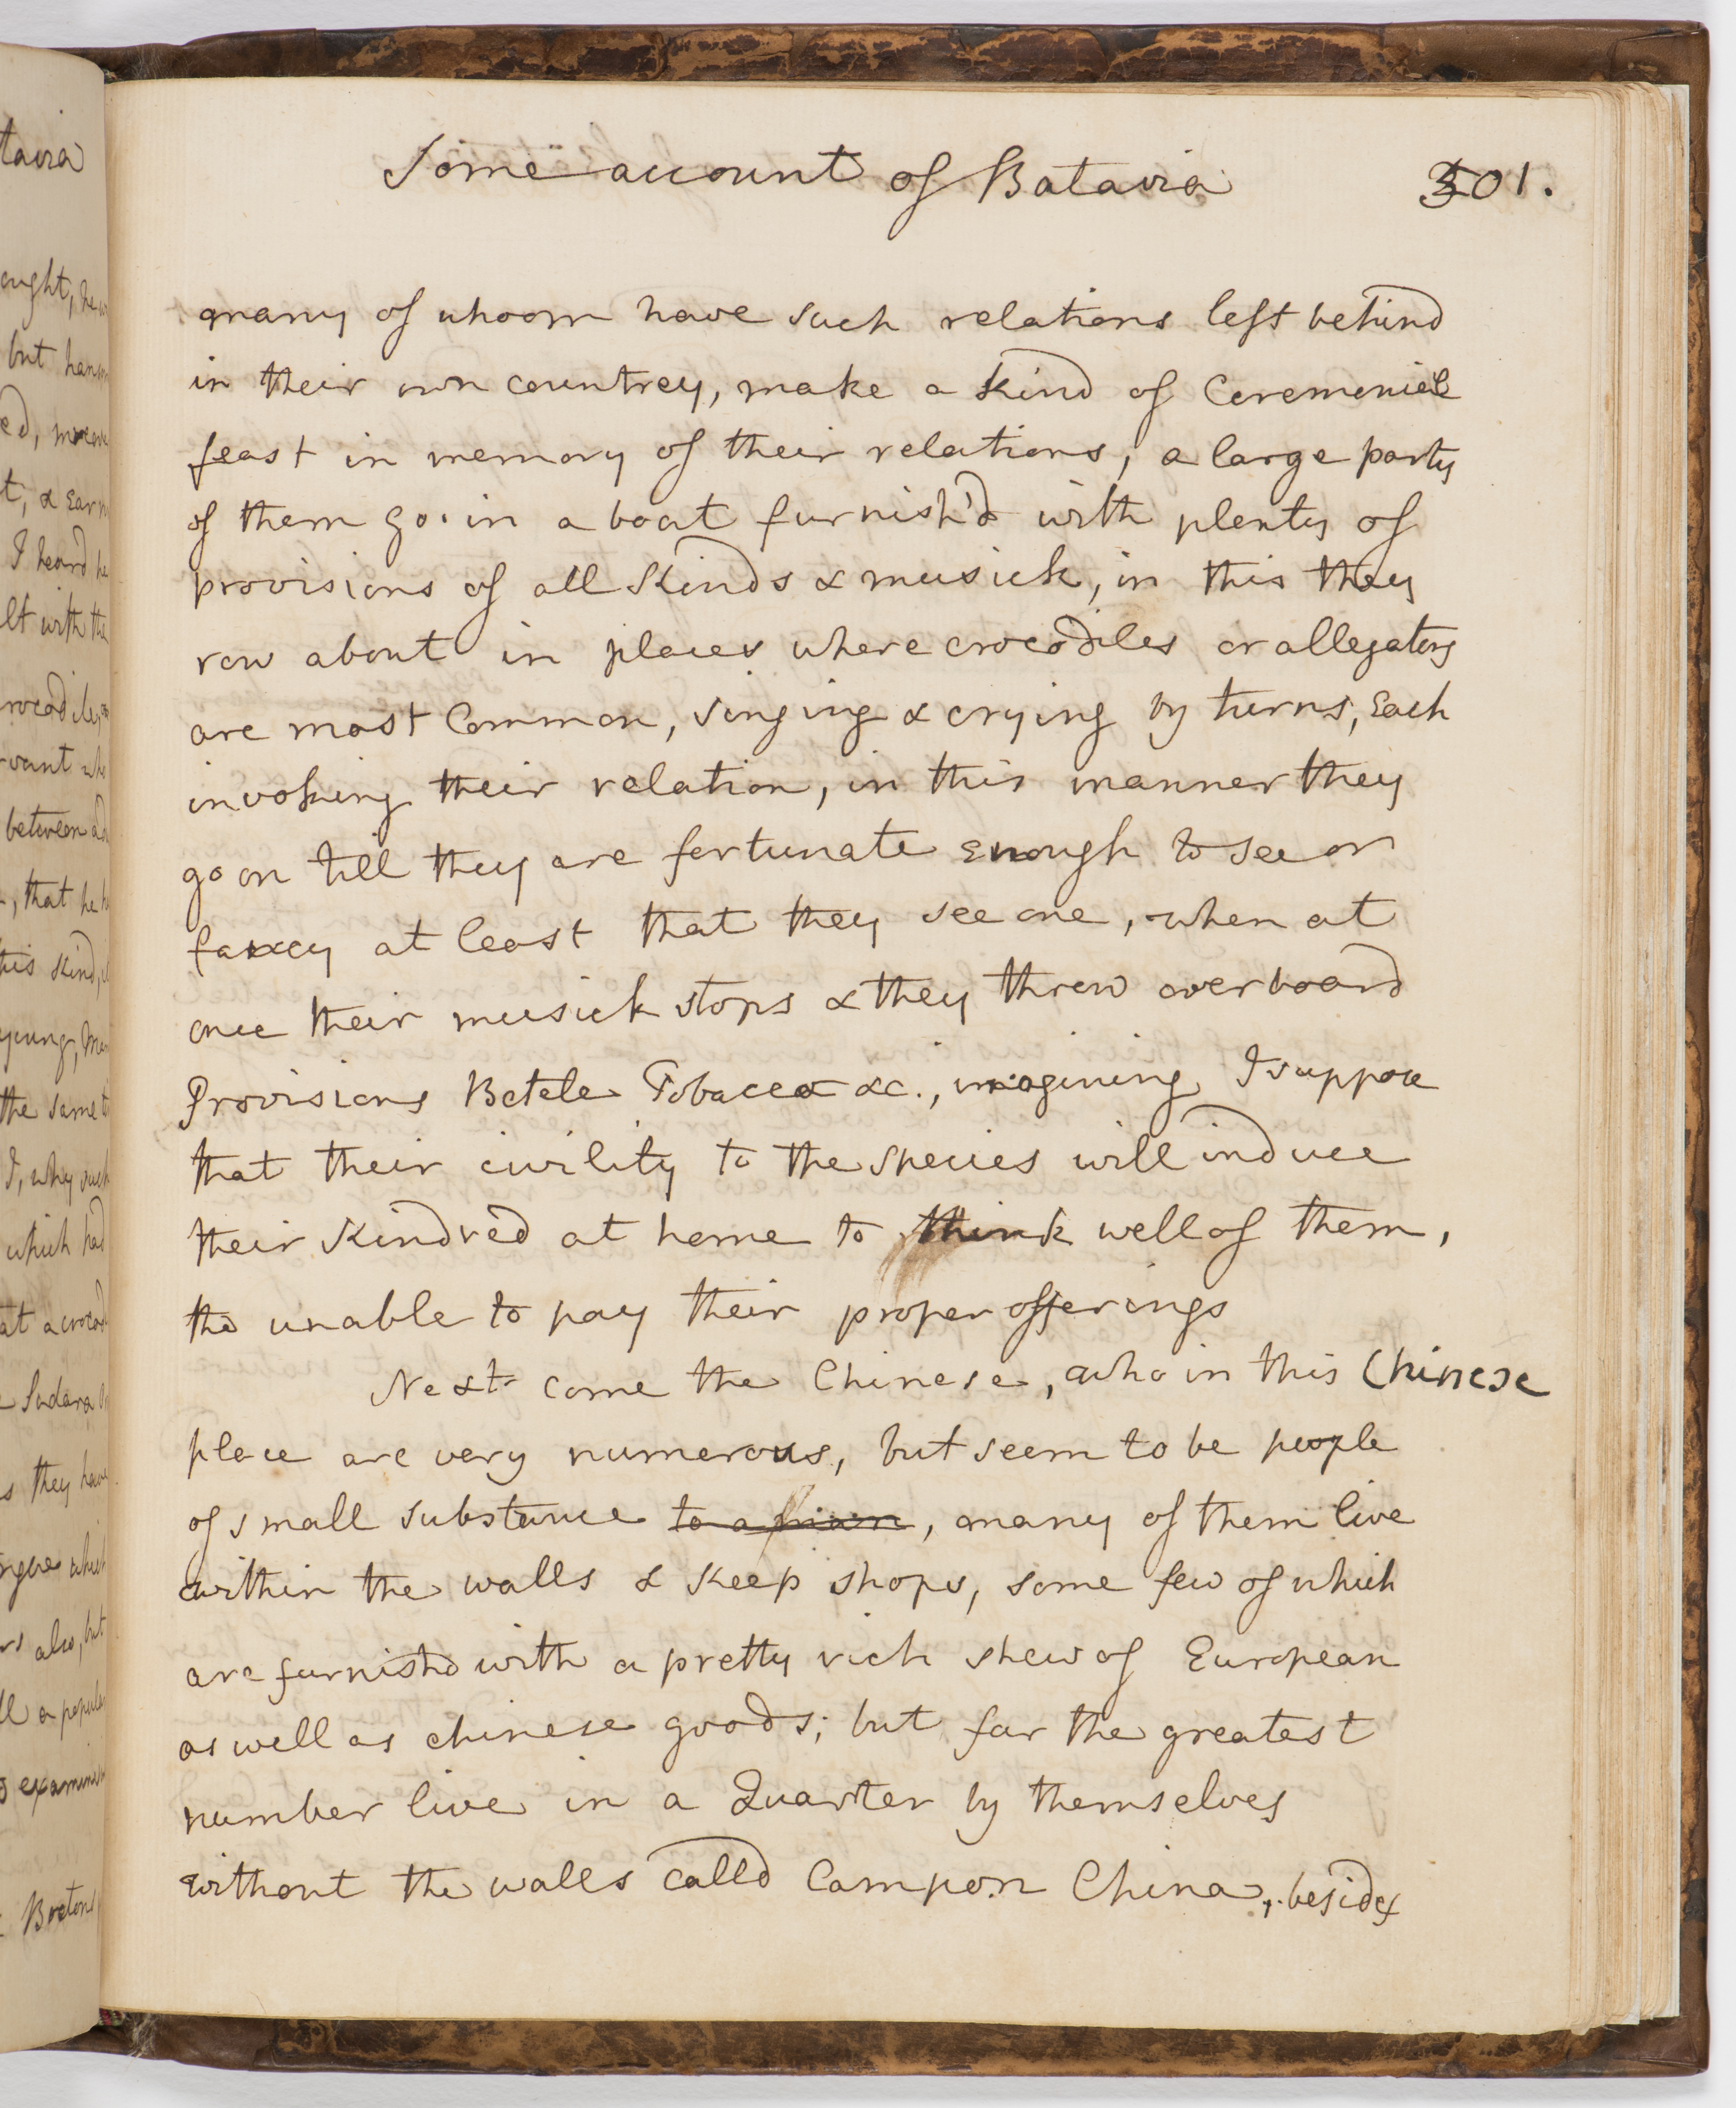 Some account of Batavia 301.
many of whoom have such relations left behind
in their own countrey, make a kind of Ceremonial
feast in memory of their relations, a large party
of them go in a boat furnish'd with plenty of
provisions of all Kinds & musick, in this they
row about in places where crocodiles or allegators
are most Common, singing & crying by turns, Each
invoking their relation, in this manner they
go on till they are fortunate enough to see or
fancy at least that they see one, when at
once their musick stops & they throw overboard
Provisions Betele Tobacco &c., imagining I suppose
that their civility to the species will induce
their Kindred at home to think well of them,
tho unable to pay their proper offerings
Next come the Chinese, who in this Chinese
place are very numerous, but seem to be people
of small substance to a, many of them live
within the walls & Keep shops, some few of which
are furnishd with a pretty rich shew of European
as well as chinese goods; but far the greatest
number live in a Quarter by themselves
without the walls calld Campon China, besides
tavia
ought, he
but
ed,
t, & Ear
I heard he
lt with the
between
, that he
his Kind,
young,
the same
I, why such
which had
at a
s they have
also, but